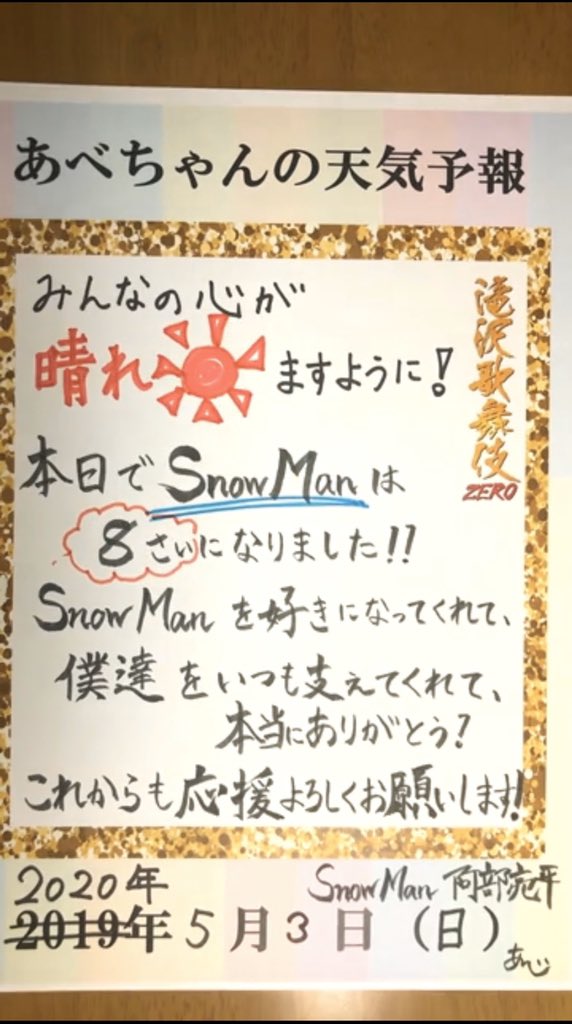 あべちゃんの天気予報
滝沢歌舞伎
ZERO
みんなの心が
晴れますように!
本日でSnow Manは
8さいになりました!!
Snow Manを好きになってくれて、
僕達をいつも支えてくれて、
本当にありがとう?
これからも応援よろしくお願いします!
Snow Man 阿部亮平
2020年
2019年5月3日(日)